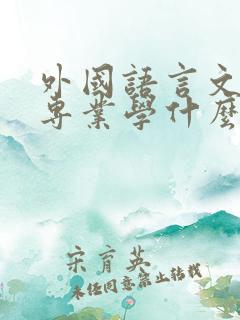 外國語言文
専業學什麼
宋育英
未经同意禁止转载